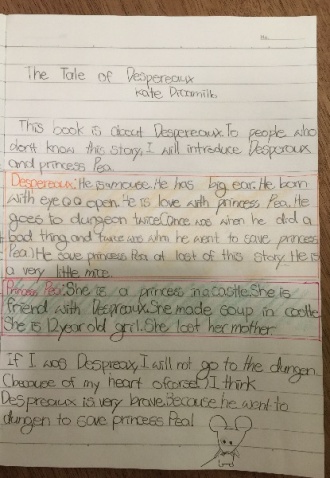 No.
The Tale of Despereaux
Kate Dicamillo
This book is about Despereaux. To people who
don't know this story, I will introduce Desperaux
and princess Pea.
Despereaux: He is mouse. He has big ear. He born
with eye open. He is love with princess Pea. He
goes to dungeon twice. (Once was when he did a
bad thing and twice are when he went to save princess
Pea.) He save princess Pea at last of this story. He is
a very little mice.
Princess Pea: She is a princess in a castle. She is
friend with Despreaux. She made soup in castle
She is 12 year old girl. She lost her mother.
If I was Despreax, I will not go to the dungen
(because of my heart of
I think
Despreaux is very brave. Because he want to
dungen to save princess Pea!